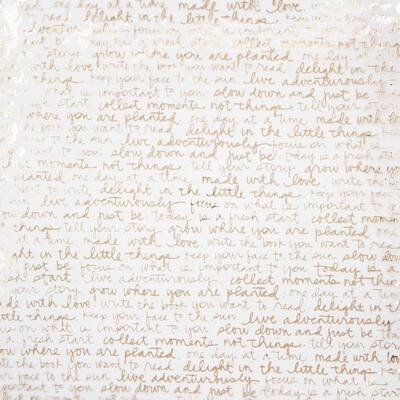 one day at a time made with love
read delight in the little things
focus on
today is a fresh start collect moments not things
story grow where you are planted one day at
with love write the book you want to read delight in the
things keep your face to the sun live adventurously
what is important to you slow down and just be
start collect moments not things tell your story
where you are planted one day at a time made with
the book you want to read delight in the little things
to the sun live adventurously focus on what
to you slow down and just be today is a fresh start
moments not things tell your story grow where
planted one day at a time made with love write the
want to read delight in the little things keep your face
sun live adventurously focus on what is important to
down and just be today is a fresh start collect
things tell your story grow where you are planted one
at a time made with love write the book you want to read
in the little things keep your face to the sun slow down
just be focus on what is important to you today is a
start live adventurously collect moments not
your story grow where you are planted one day at a time
made with love write the book you want to read delight in
little things keep your face to the sun live adventurously
on what is important to you slow down and just be
a fresh start collect moments not things tell your story
where you are planted one day at a time made with
the book you want to read delight in the little things
face to the sun live adventurously focus on what is
to you slow down and just be today is a fresh start